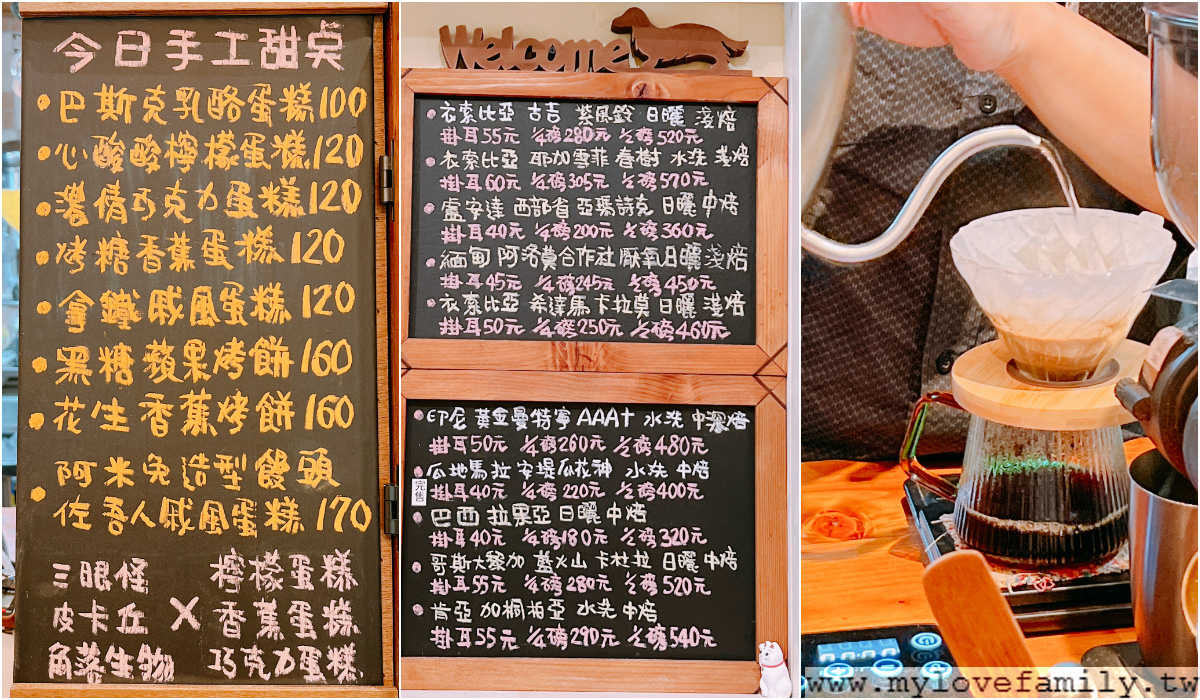 今日手工甜点
巴斯克乳酪蛋糕100
心酸酸檸檬蛋糕120
濃情巧克力蛋糕120
烤糖香蕉蛋糕120
拿鐵戚風蛋糕120
黑糖蘋果烤餅160
花生香蕉烤餅160
阿米兔造型饅頭
佐吾人戚風蛋糕170
三眼怪 檸檬蛋糕
皮卡丘 X 香蕉蛋糕
角落生物 巧克力蛋糕
Welcome
衣索比亞 古吉 紫風鈴 日曬 淺焙
掛耳55元 1/4磅280元 1/2磅520元
衣索比亞 耶加雪菲 春樹 水洗 淺焙
掛耳60元 1/4磅305元 1/2磅570元
盧安達 西部省 亞瑪詩克 日曬 中焙
掛耳40元 1/4磅200元 1/2磅360元
緬甸 阿洛莫合作社 厭氧日曬淺焙
掛耳45元 1/4磅245元 1/2磅450元
衣索比亞 希達馬 卡拉莫 日曬 淺焙
掛耳50元 1/4磅250元 1/2磅460元
印尼 黃金曼特寧 AAA+ 水洗 中深焙
掛耳50元 1/4磅260元 1/2磅480元
瓜地馬拉 安堤瓜花神 水洗 中焙
完售
掛耳40元 1/4磅220元 1/2磅400元
巴西 拉果亞 日曬 中焙
掛耳40元 1/4磅180元 1/2磅320元
哥斯大黎加 藍火山 卡杜拉 日曬 中焙
掛耳55元 1/4磅280元 1/2磅520元
肯亞 加桐柏亞 水洗 中焙
掛耳55元 1/4磅290元 1/2磅540元
www.mylovefamily.tw